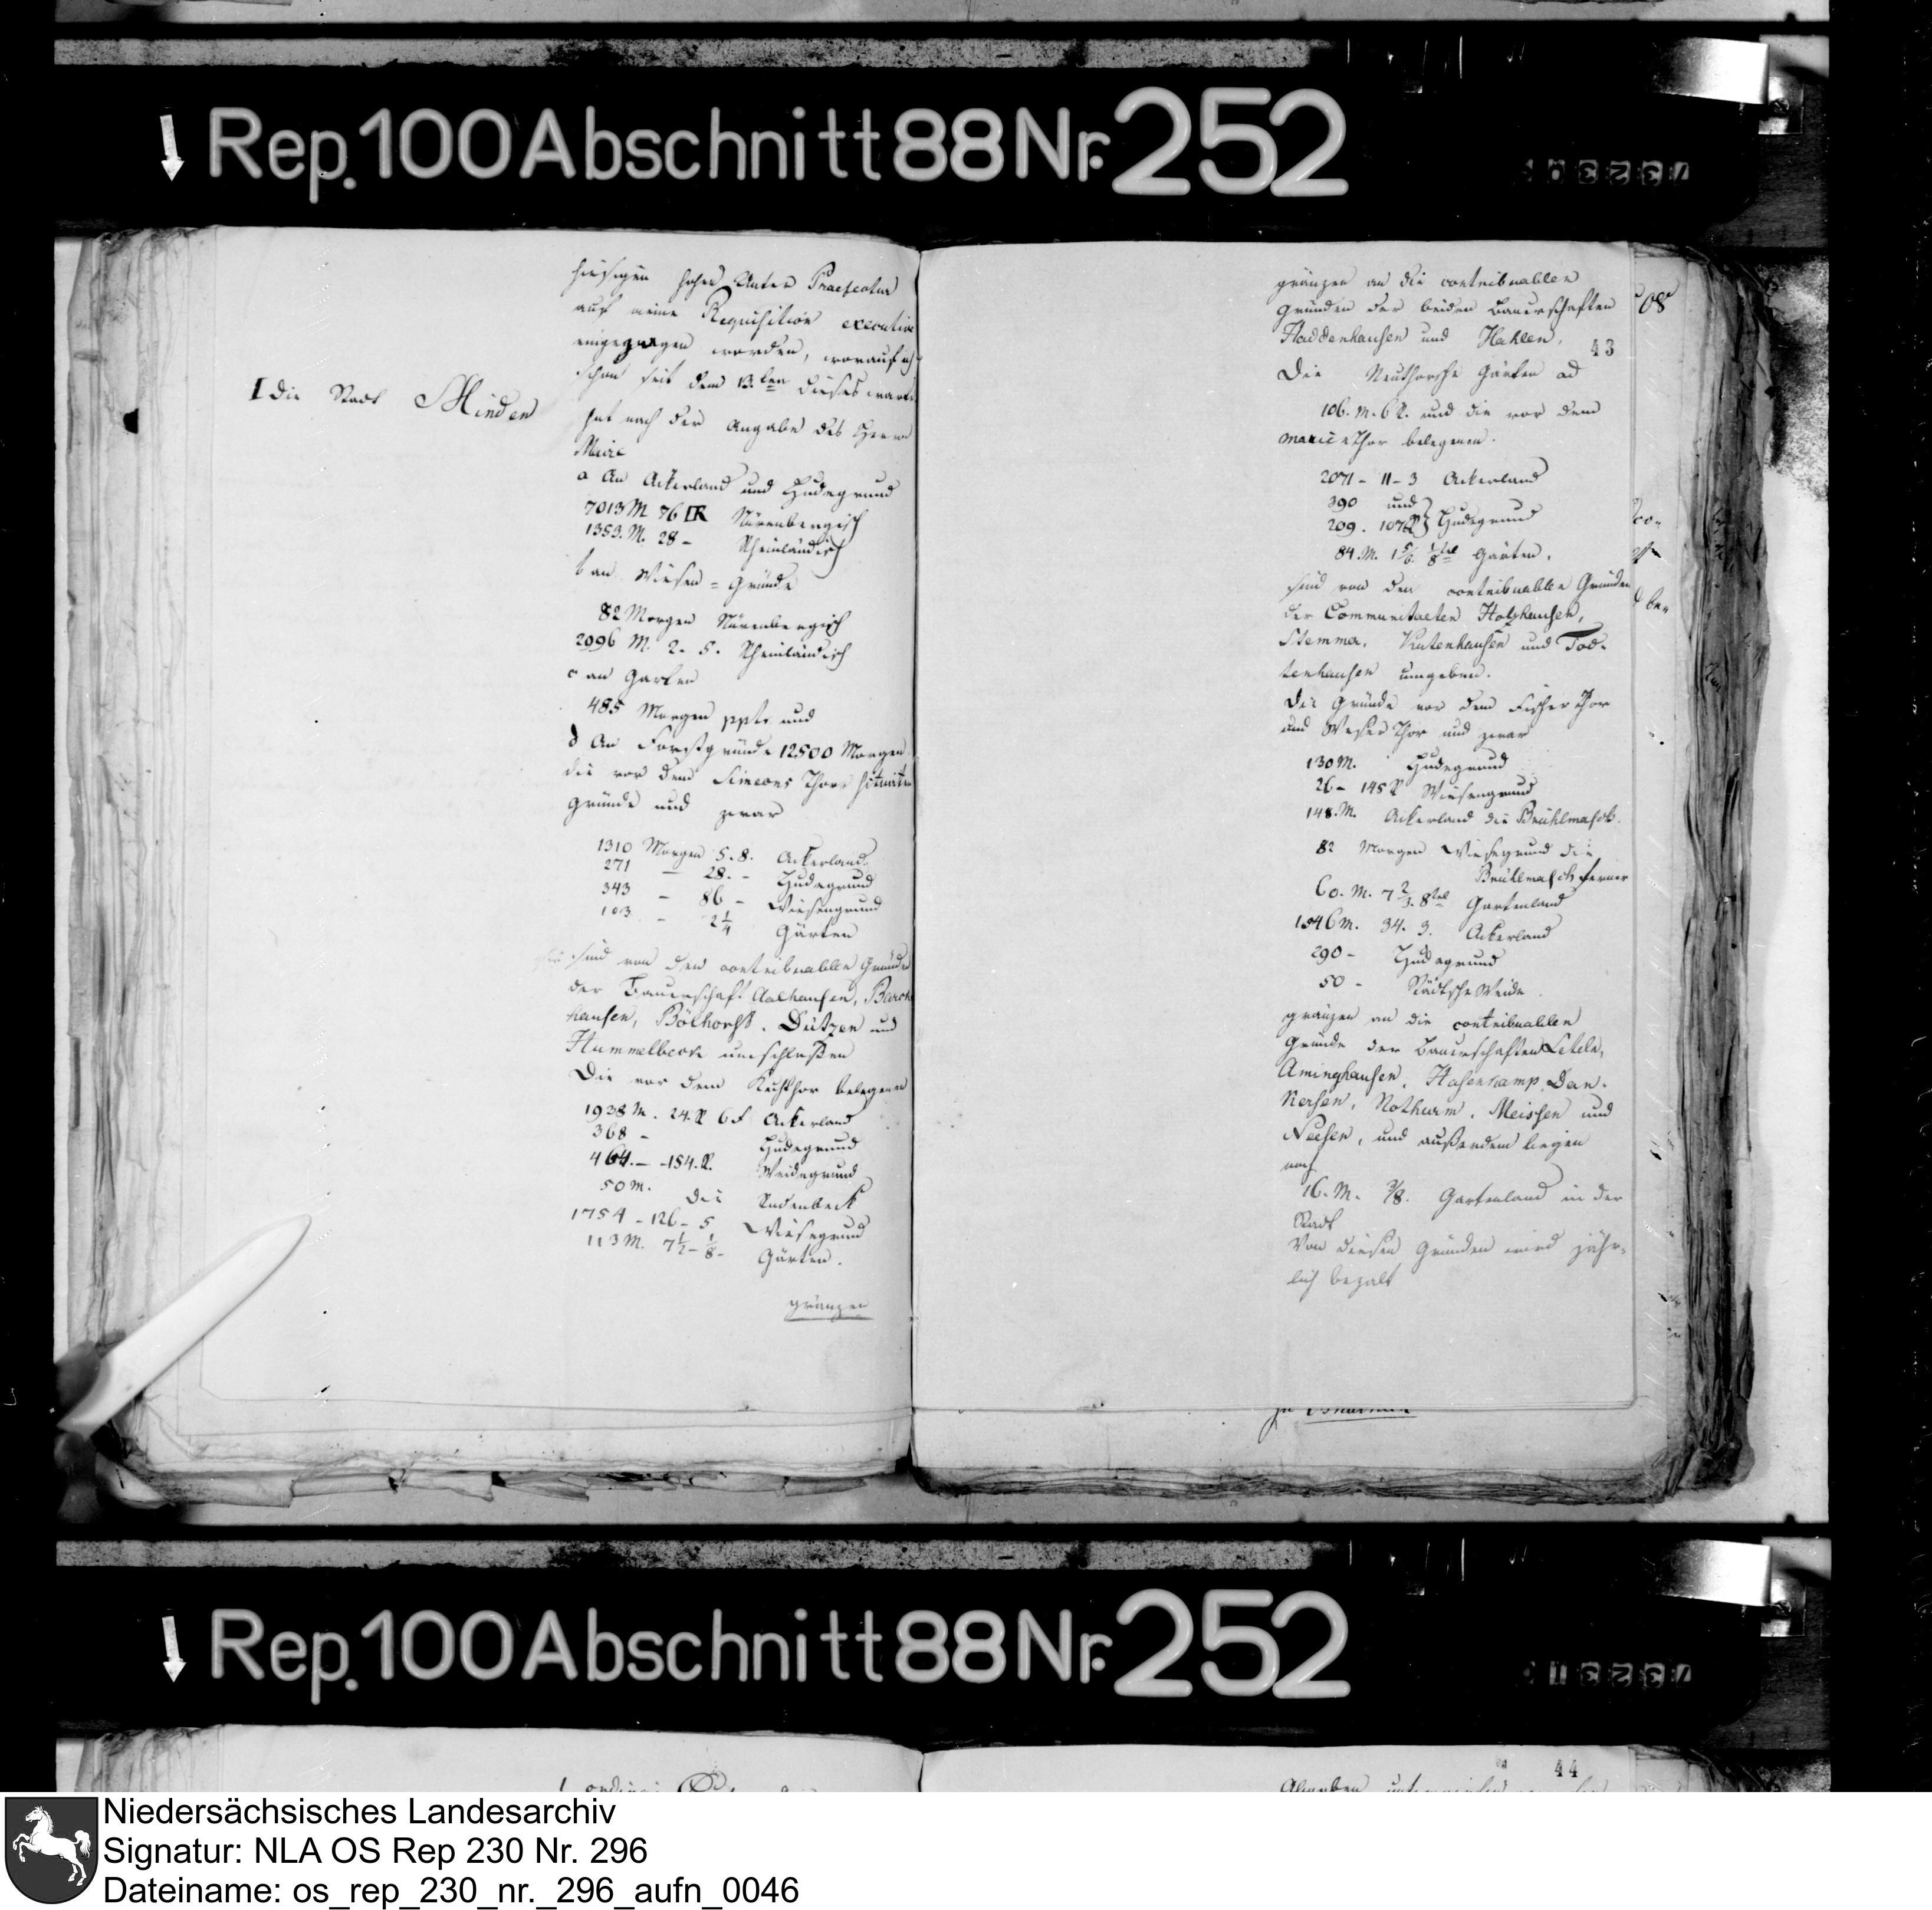 Rep. 100 Abschnitt 88 Nr. 252
hiesigen hohen Unter Praefectur
auf meine Requisition executive
eingezogen worden, worauf ich
schon seit dem 13.ten dieses warte
I die Stadt Minden
hat nach der Angabe des Herrn
Maire
a An Ackerland und Hudegrund
7013 M 76 R Nürenbergisch
1353. M. 28 - Rheinländisch
b an Wiesen = Gründe
82 Morgen Nürenbergisch
2096 M. 2. 5. Rheinländisch
c an Garten
485 Morgen ppter und
d An Forstgründe 12500 Morgen
die vor dem Simeons Thore situirten
Gründe und zwar
1310 Morgen 5. 8. Ackerland
271 — 28. - Hudegrund
343 - 86 - Wiesengrund
103 - 2 1/4 Gärten
sind von den contribuablen Gründen
der Bauerschaft Aulhausen, Barck
hausen, Bölhorst, Dützen und
Hummelbeck umschloßen
Die vor dem Kuhthor belegenen
1938 M. 24. R 6 f Ackerland
368 - Hudegrund
464. — 154. R. Weidegrund
50 M. die Rodenbeck
1754 - 126 - 5 Wiesegrund
113 M. 7 1/2 - 1/8 - Gärten.
gränzen
gränzen an die contribuablen
Gründen der beiden Bauerschaften
Haddenhausen und Hahlen.
43
Die Neuthorsche Gärten ad
106. M. 6 R. und die vor dem
marien Thor belegenen.
2071 - 11 - 3 Ackerland
390 und
209. 107 R } Hudegrund
84. M. 1 5/6. 1/8tel Gärten.
sind von den contribuablen Gründen
der Communitaeten Holzhausen,
Stemmer, Kutenhausen und Tod-
tenhausen umgeben.
Die Gründe vor dem Fischer Thor
und Weser Thor und zwar
130 M. Hudegrund
26 - 145 R Wiesengrund
148. M. Ackerland die Brühlmasch.
82 Morgen Wiesegrund die
Brühlmasch ferner
60. M. 7 2/3. 8tel Gartenland
1546 M. 34. 3. Ackerland
290 - Hudegrund
50 - Städtsche Weide.
gränzen an die contribuablen
Gründe der Bauerschaften Leteln,
Aminghausen, Hasenkamp, Dan-
kersen, Nothurm, Meissen und
Neesen, und außerdem liegen
noch
16. M. 3/8. Gartenland in der
Stadt
Von diesen Gründen wird jähr-
lich bezalt
Rep. 100 Abschnitt 88 Nr. 252
44
Niedersächsisches Landesarchiv
Signatur: NLA OS Rep 230 Nr. 296
Dateiname: os_rep_230_nr._296_aufn_0046